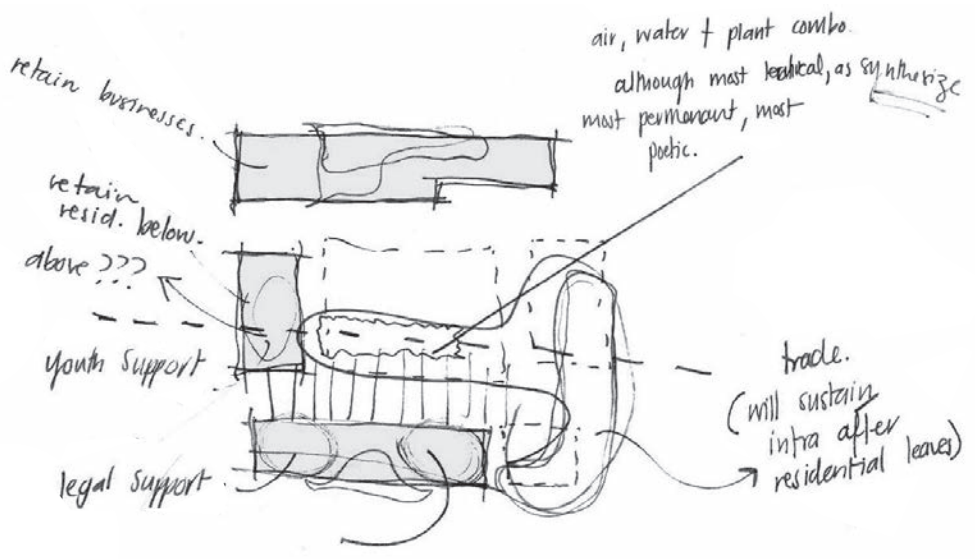 air, water + plant combo.
although most , as synthesize
most permanant, most
poetic.
retain businesses.
retain
resid. below.
above ???
youth support
legal support.
trade.
(will sustain
infra after
residential leaves)